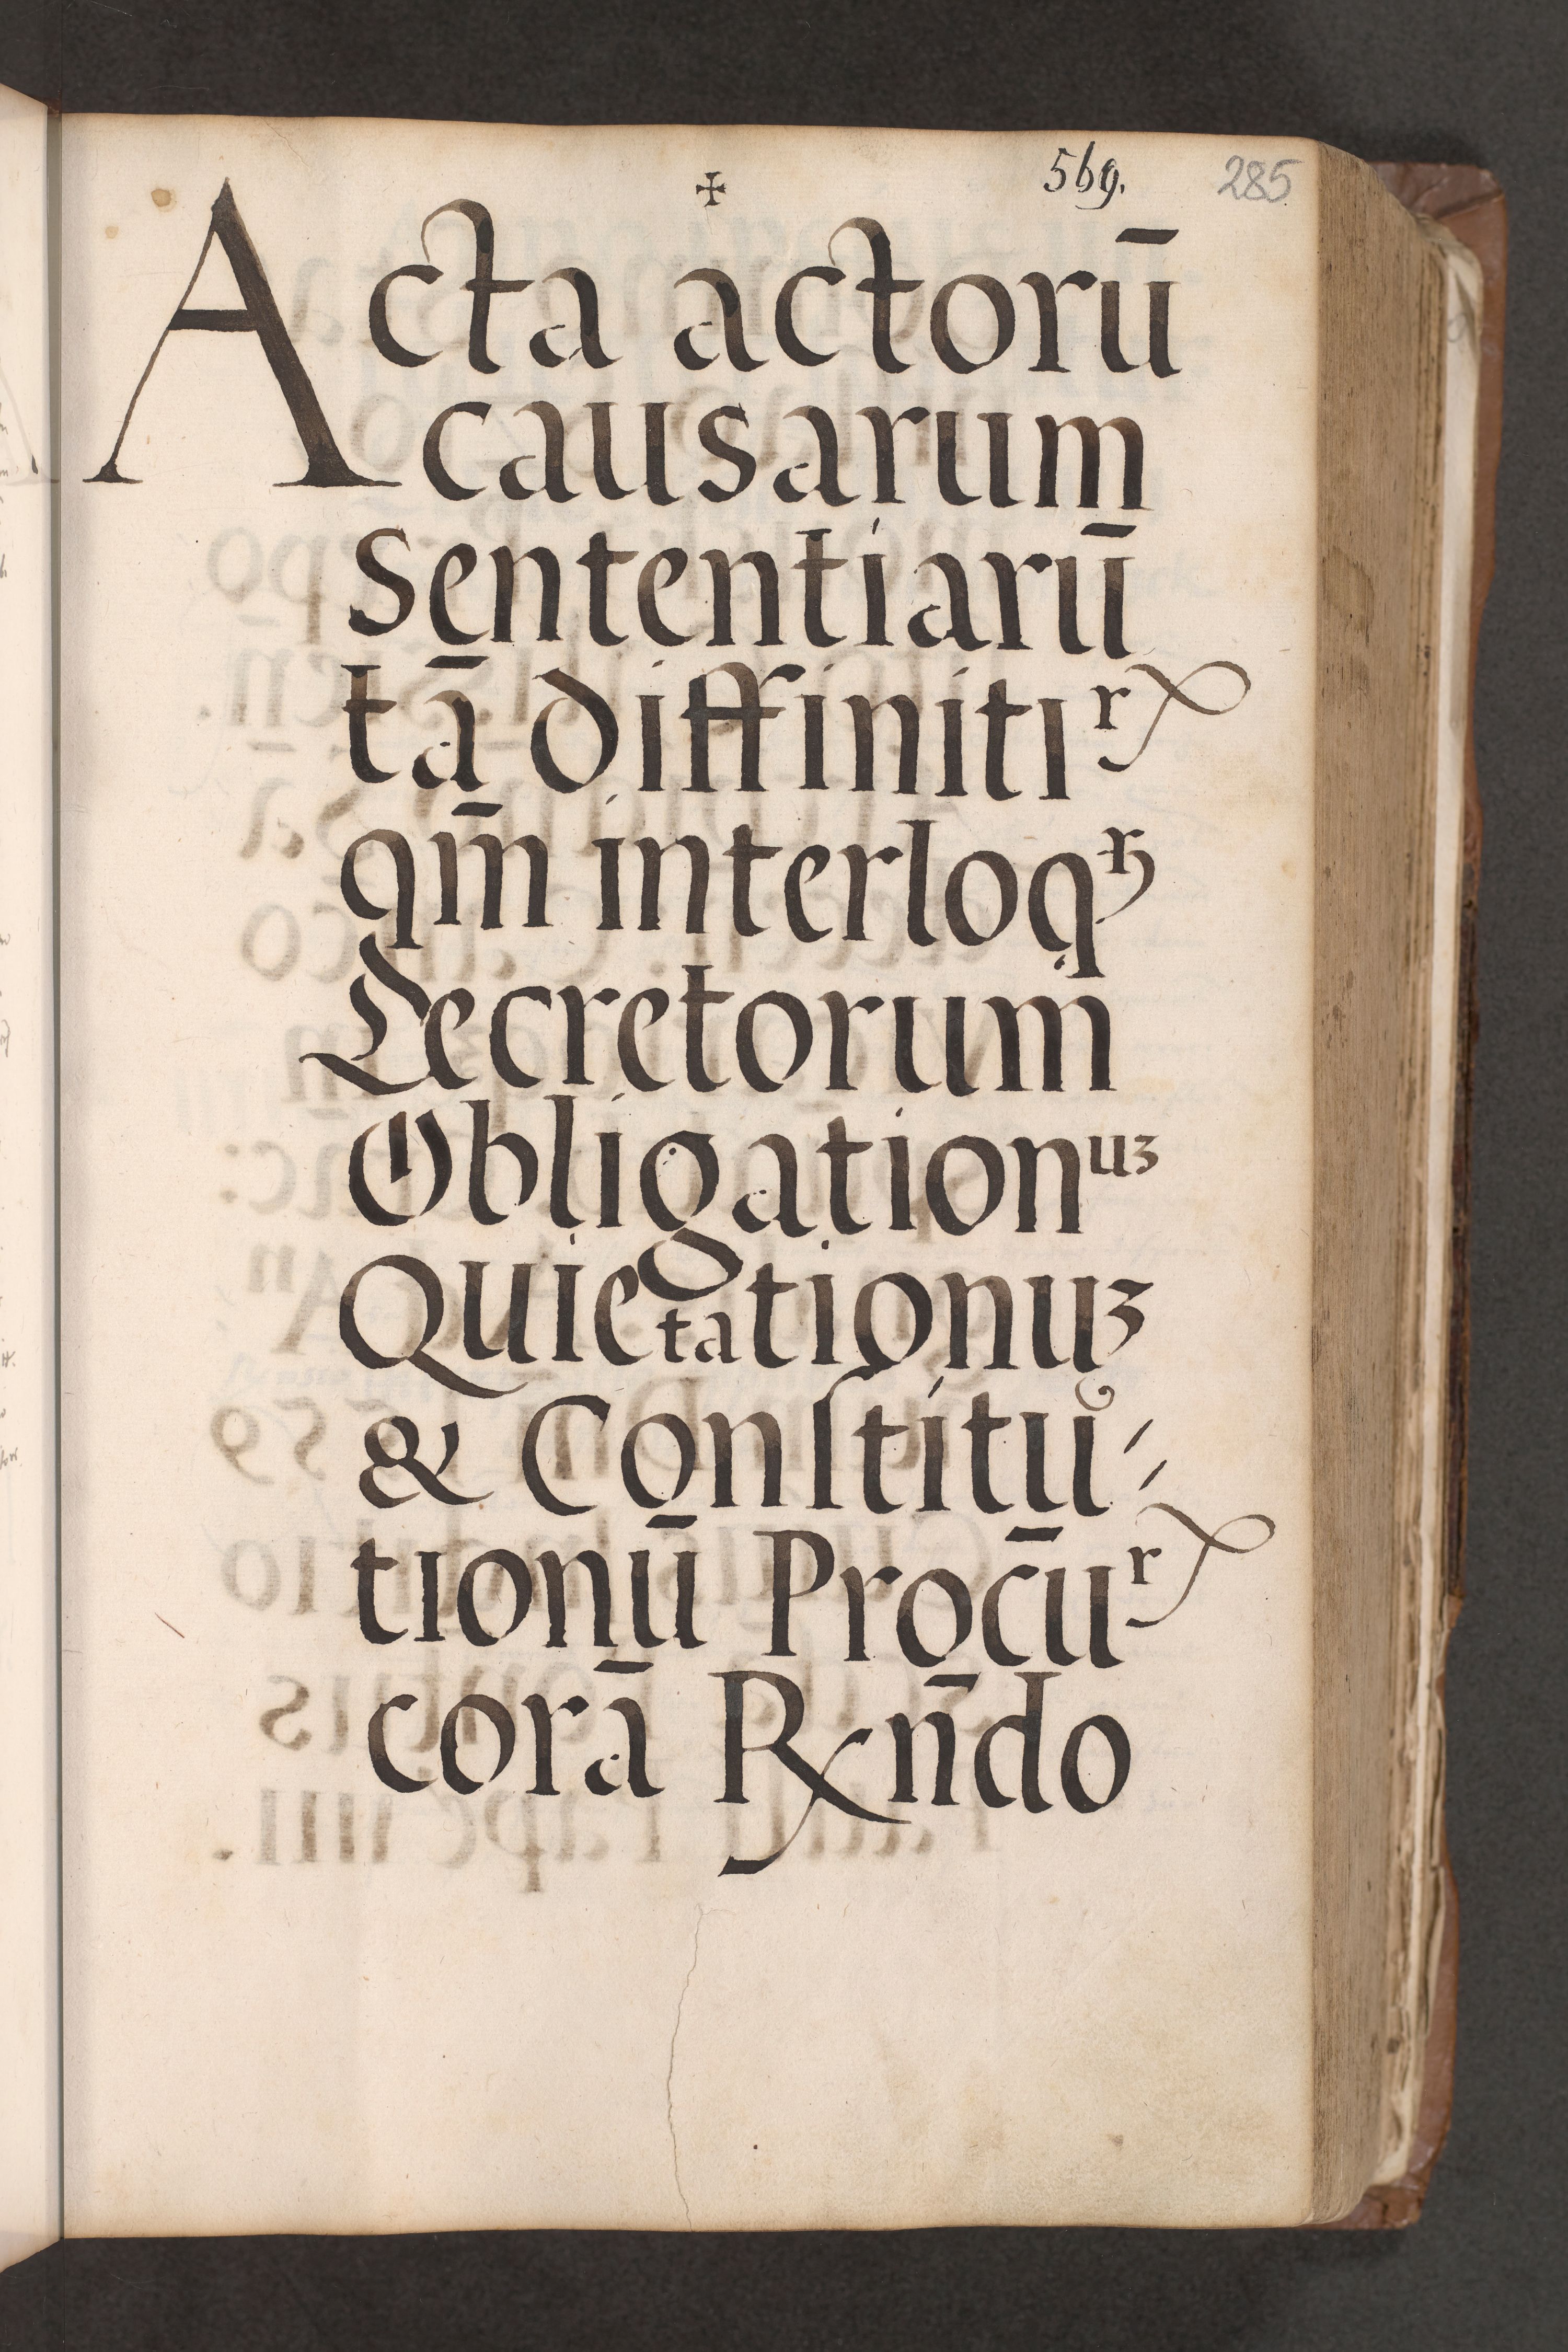 ✠ 569. 285
Acta actorū
causarum
Sententiarū
tā diffinitiꝝ
qm̄ interloqꝝ
Decretorum
Obligationuꝫ
Quietationuꝫ
& Conſtitu⸗
tionū Procūꝝ
corā Rn̄do